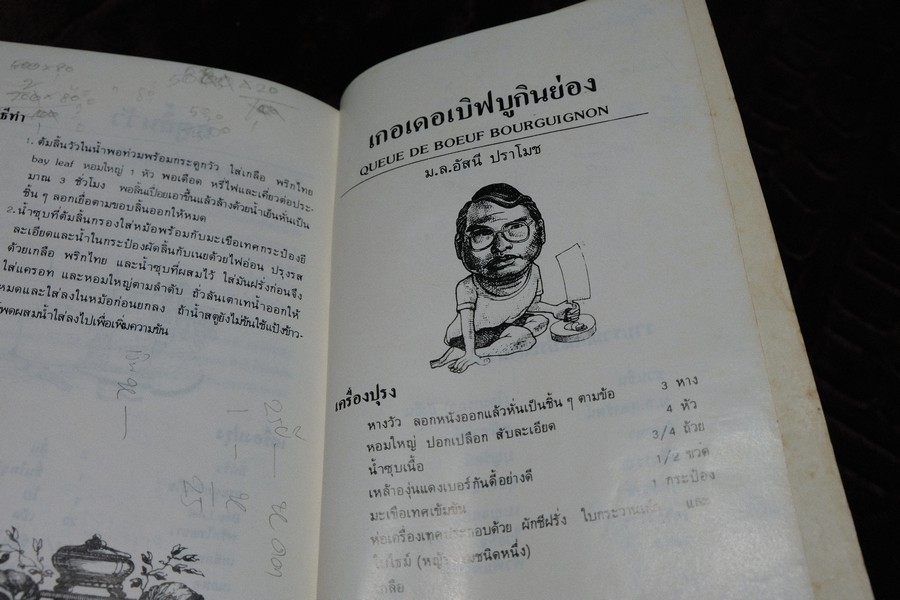 400 x 80
ธีทำ
1. ต้มลิ้นวัวในน้ำพอท่วมพร้อมกระดูกวัว ใส่เกลือ พริกไทย
bay leaf หอมใหญ่ 1 หัว พอเดือด หรี่ไฟและเคี่ยวต่อประ-
มาณ 3 ชั่วโมง พอลิ้นเปื่อยเอาขึ้นแล้วล้างด้วยน้ำเย็นหั่นเป็น
ชิ้น ๆ ลอกเยื่อตามขอบลิ้นออกให้หมด
2. น้ำซุปที่ต้มลิ้นกรองใส่หม้อพร้อมกับมะเขือเทศกระป๋องยี
ละเอียดและน้ำในกระป๋องผัดลิ้นกับเนยด้วยไฟอ่อน ปรุงรส
ด้วยเกลือ พริกไทย และน้ำซุปที่ผสมไว้ ใส่มันฝรั่งก่อนจึง
ใส่แครอท และหอมใหญ่ตามลำดับ ถั่วลันเตาเทน้ำออกให้
หมดและใส่ลงในหม้อก่อนยกลง ถ้าน้ำสตูยังไม่ข้นใช้แป้งข้าว-
โพดผสมน้ำใส่ลงไปเพื่อเพิ่มความข้น
25
เกอเดอเบิฟบูกินย่อง
QUEUE DE BOEUF BOURGUIGNON
ม.ล.อัสนี ปราโมช
เครื่องปรุง
หางวัว ลอกหนังออกแล้วหั่นเป็นชิ้น ๆ ตามข้อ 3 หาง
หอมใหญ่ ปอกเปลือก สับละเอียด 4 หัว
น้ำซุบเนื้อ 3/4 ถ้วย
เหล้าองุ่นแดงเบอร์กันดี้อย่างดี 1/2 ขวด
มะเขือเทศเข้มข้น 1 กระป๋อง
ห่อเครื่องเทศประกอบด้วย ผักชีฝรั่ง ใบกระวาน และ
ใบไธม์ (หญ้าหอมชนิดหนึ่ง)
เกลือ